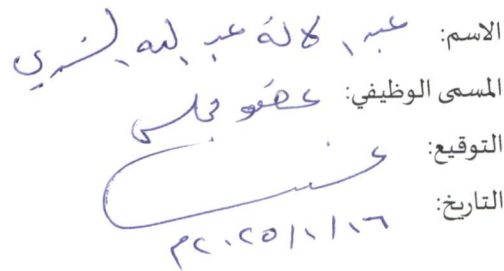 الاسم: عبد الاله عبد الله
المسمى الوظيفي: عضو مجلس
التوقيع:
التاريخ: ٢٠٢٥/١/١٦م